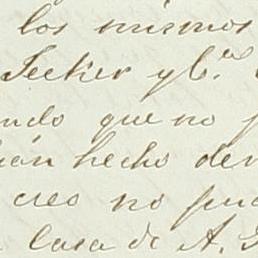 los mismos
Tecker y C.ª
ndo que no p
ian hecho den
creo no pue
Casa de A.